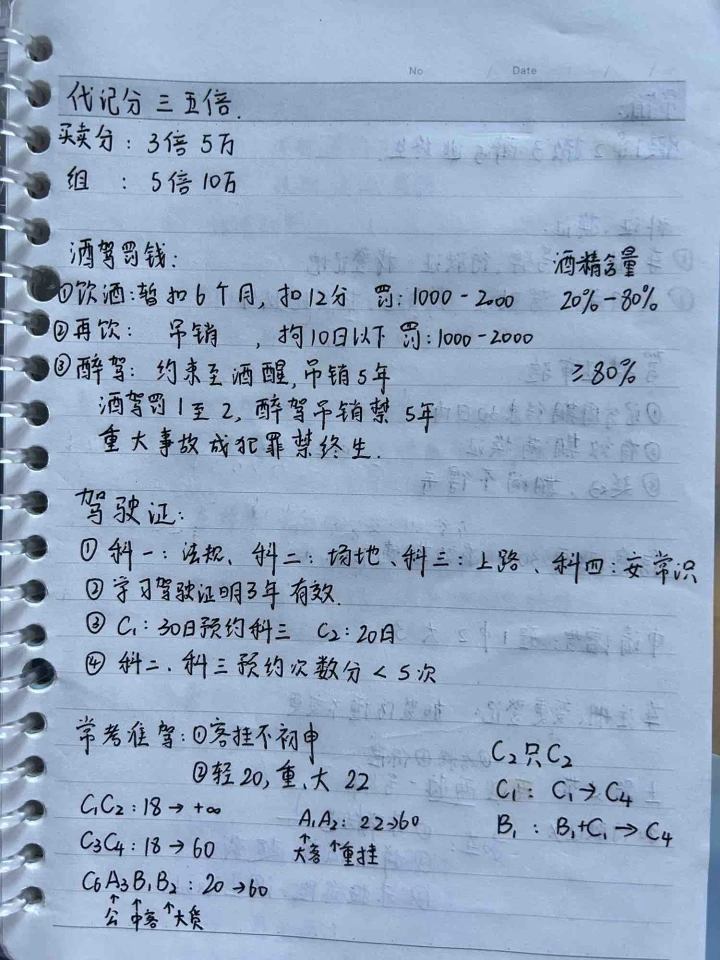 No
Date
代记分 三五倍.
买卖分: 3倍 5万
组 : 5倍 10万
酒驾罚钱: 酒精含量
①饮酒:暂扣6个月, 扣12分 罚: 1000-2000 20%-80%
②再饮: 吊销 , 拘10日以下 罚:1000-2000
③醉驾: 约束至酒醒, 吊销5年 ≥80%
酒驾罚1至2, 醉驾吊销禁5年
重大事故成犯罪禁终生.
驾驶证:
①科一: 法规、科二: 场地、科三: 上路、科四: 安常识
②学习驾驶证明3年有效.
③C1: 30日预约科三 C2: 20日
④科二、科三预约次数分<5次
常考准驾: ①客挂不初申
②轻20, 重、大 22
C2只C2
C1C2: 18→+∞
C1: C1→C4
C3C4: 18→60
A1A2: 22→60
B1: B1+C1→C4
↑大客 ↑重挂
C6A3B1B2: 20→60
↑公 ↑中客 ↑大货